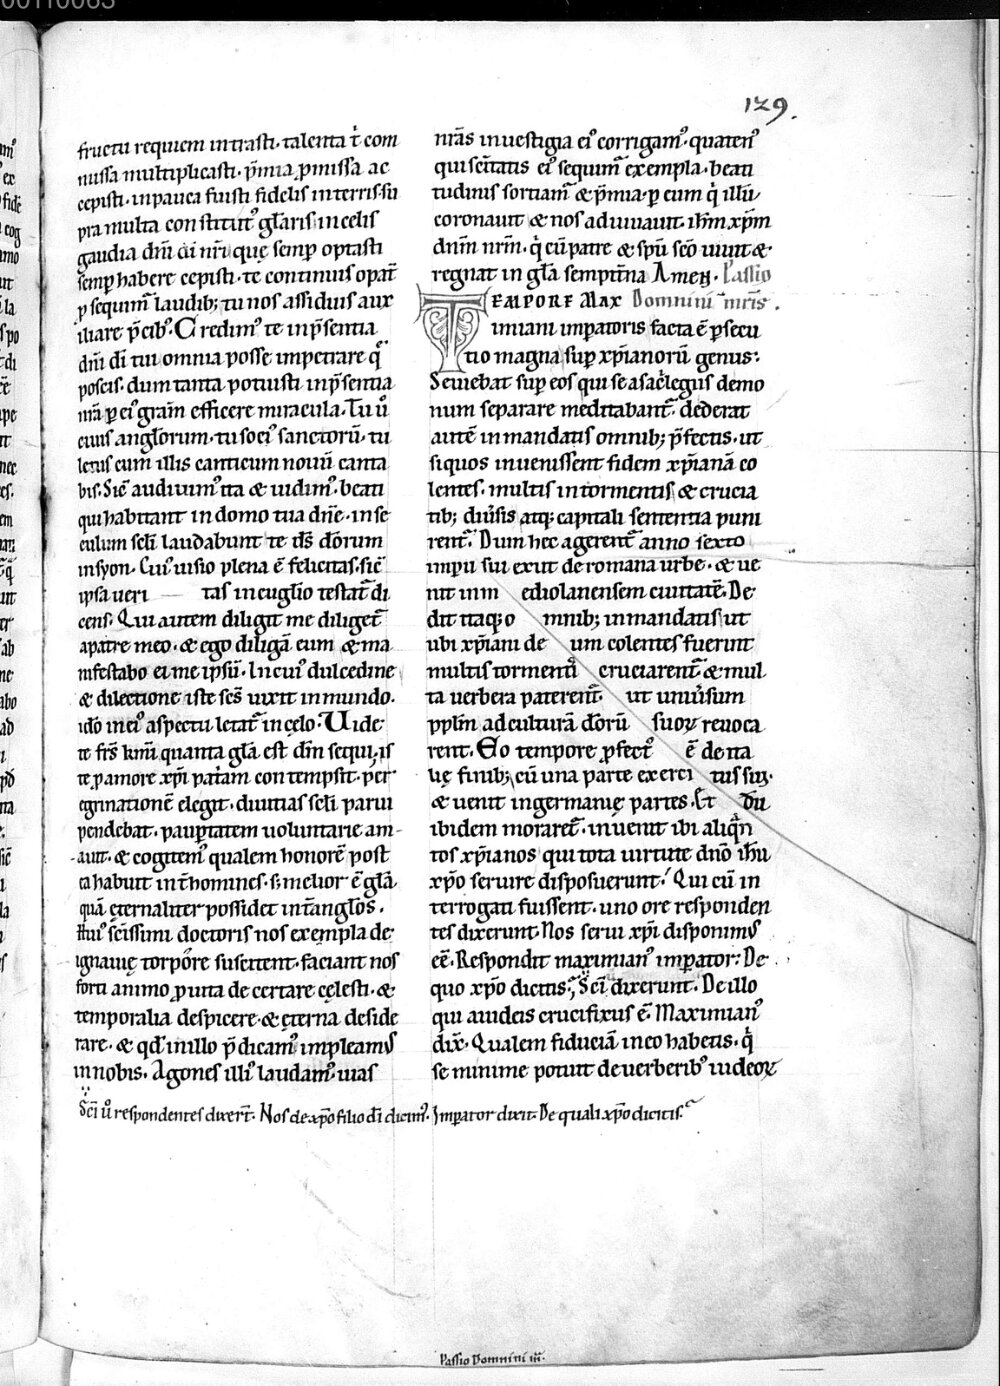 00110063
129.
fructu requiem intrasti. talenta t͛ com
missa multiplicasti. p̄mia ꝓmissa ac
cepisti. inpauca fuisti fidelis interris. su
pra multa constitutꝰ gl̄aris incelis
gaudia dn̄i di nr̄i quę semꝑ optasti
semꝑ habere cepisti. te continuis opat᷑
ꝓsequim᷑ laudib; tu nos assiduis aux
iliare p̄cibꝰ. Credimꝰ te inp̄sentia
dn̄i dī tui omnia posse impetrare qͦ
poscis. dum tanta potuisti inp̄sentia
nr̄a ꝑ eiꝰ gr̄am efficere miracula. Tu uͦ
ciuis angl̄orum. tu sociꝰ sanctorū. tu
letus cum illis canticum nouū canta
bis. Sic̄ audiuimꝰ ita & uidimꝰ. beati
qui habitant in domo tua dn̄e. inse
culum sc̄li laudabunt te ds̄ dōrum
insyon. Cuiꝰ uisio plena ē felicitas. sic̄
ipsa ueri tas in euḡlio testat᷑ di
cens. Qui autem diligit me diliget᷑
apatre meo. & ego diligā eum & ma
nifestabo ei me ipsū. In cuiꝰ dulcedine
& dilectione iste sc̄s uixit in mundo.
idō in eiꝰ aspectu letat᷑ in cęlo. Uide
te fr̄s km̄i quanta gl̄a est dn̄m sequi. is
te ꝓ amore xp̄i pat͛am contempsit. ꝑer
egrinationē elegit. diuitias sc̄li parui
pendebat. pauꝑtatem uoluntarie am-
auit. & cogitemꝰ qualem honorē post
ea habuit int͛ homines. s; melior ē gl̄a.
quā ęternaliter possidet int͛ angl̄os.
Huiꝰ sc̄issimi doctoris nos exempla de
ignauię torpore suscitent. faciant nos
forti animo ꝓ uita decertare cęlesti. &
temporalia despicere. & ęterna deside
rare. & qd̄ in illo p̄dicamꝰ impleamꝰ
innobis. Agones illiꝰ laudamꝰ. uias
nr̄as inuestigia eiꝰ corrigamꝰ. quatenꝰ
qui sc̄itatis eiꝰ sequim᷑ exempla. beati
tudinis sortiam᷑ & p̄mia. ꝑ eum qͥ illū
coronauit & nos adiuuauit. ih̄m xp̄m
dn̄m nr̄m. qͥ cū patre & sp̄u sc̄o uiuit &
regnat in gl̄a sempit͛na Amen. Passio
TEMPORE Max Domnini mr̄is.
imiani imꝑatoris facta ē ꝑsecu
tio magna suꝑ xp̄ianorū genus:
Seuiebat suꝑ eos qui se asac͛legus demo
num separare meditabant᷑. dederat
autē in mandatis omnib; p̄fectis. ut
siquos inuenissent fidem xp̄ianā co
lentes. multis intormentis & crucia
tib; diu͛sis atq; capitali sententia puni
rent᷑. Dum hec agerent᷑ anno sexto
imꝑii sui exiit de romana urbe. & ue
nit in m ediolanensem ciuitatē. De
dit itaq; o mnib; in mandatis ut
ubi xp̄iani de um colentes fuerint
multis tormentꝭ cruciarent᷑ & mul
ta uerbera paterent᷑. ut uniu͛sum
ppl̄m ad culturā dōrū suoꝝ reuoca
rent. Eo tempore ꝓfectꝰ ē de ita
lię finib; cū una parte exerci tus sui.
& uenit ingermanię partes. Et dū
ibidem moraret᷑. inuenit ibi aliqͣn
tos xp̄ianos qui tota uirtute dn̄o ih̄u
xp̄o seruire disposuerunt. Qui cū in
terrogati fuissent. uno ore responden
tes dixerunt. Nos serui xp̄i disponimꝰ
eē. Respondit maximianꝰ imꝑator: De
quo xp̄o dicitis; Sc̄i dixerunt. De illo
qui a iudeis crucifixus ē. Maximianꝰ
dix̄. Qualem fiduciā in eo habetis. qͥ
se minime potuit de uerberibꝰ iudeoꝝ
Sc̄i uͦ respondentes dix̄ert. Nos de xp̄o filio dī dicimꝰ. Imꝑator dixit. De quali xp̄o dicitis.
Passio Domnini m̄.